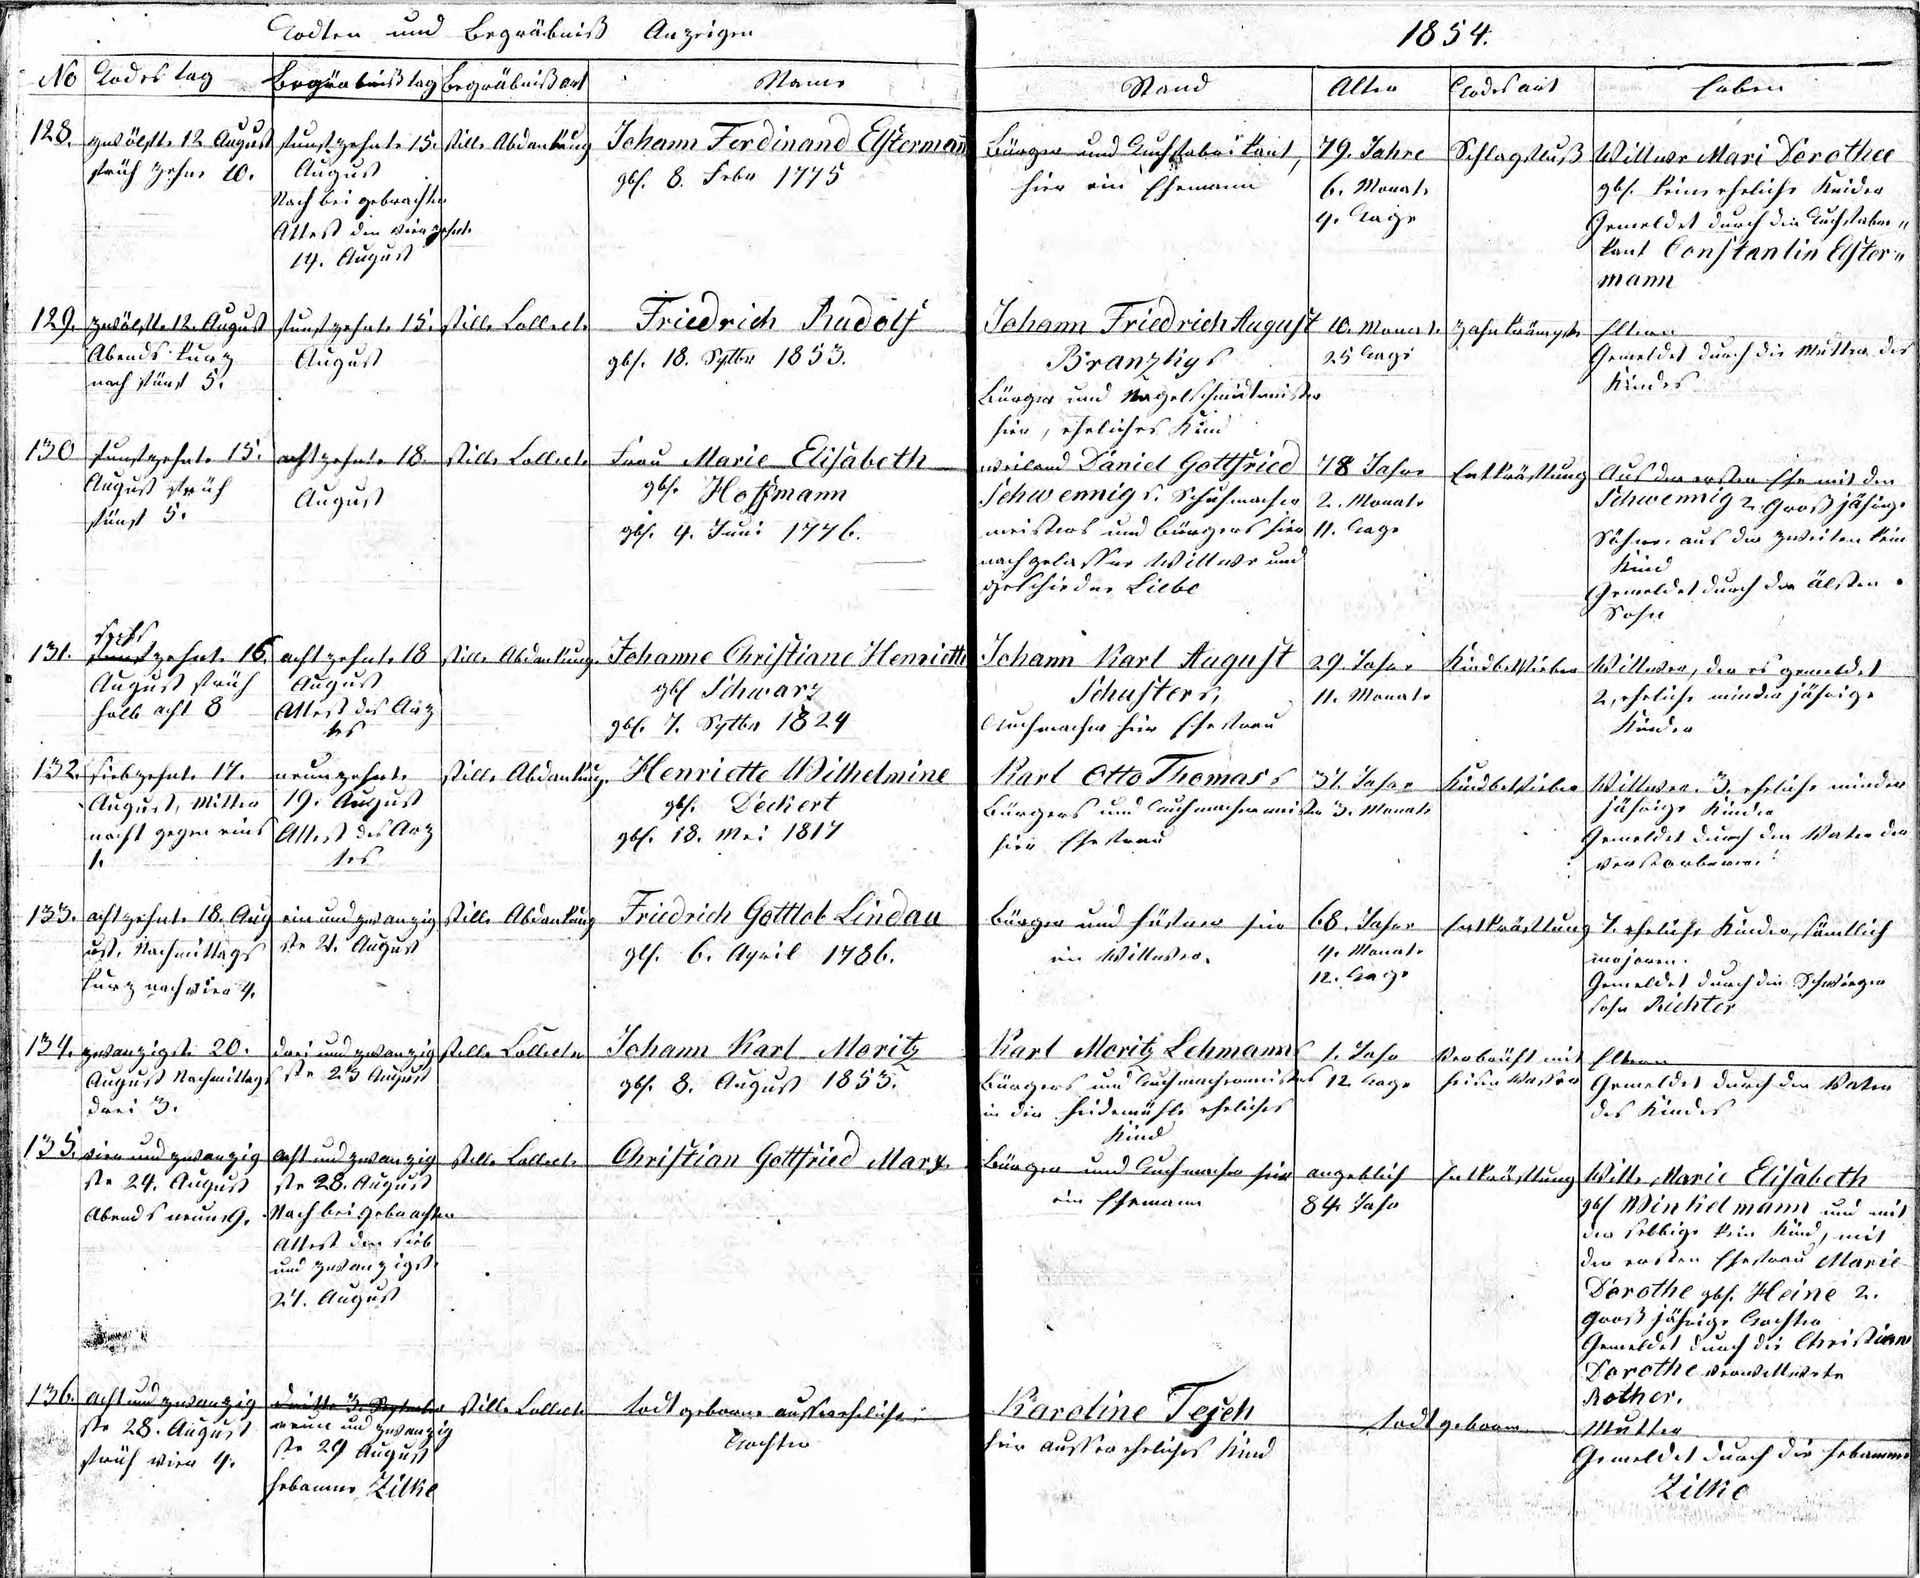 Todten und Begräbniß Anzeigen
1854.
No Todes tag Begräbnißtag Begräbnißart Name Stand Alter Todesart Erben
128. zwölfte 12 August
früh zehn 10.
funfzehnte 15.
August
Nach bei gebrachten
Attest den vierzehnt.
14. August
stille Abdankung
Johann Ferdinand Elstermann
geb. 8. Febr 1775
Bürger und Tuchfabrikant,
hier ein Ehemann
79. Jahre
6. Monate
4. Tage
Schlagfluß
Wittwe Mari Dorothee
geb. keine eheliche Kinder
Gemeldet durch den Tuchfabri„
kant Constantin Elster„
mann
129. zwölfte 12. August
Abends kurz
nach fünf 5.
funfzehnte 15.
August
stille Collecte
Friedrich Rudolf
geb. 18. Sptbr 1853.
Johann Friedrich August
Branzkys
Bürger und Nagelschmidtmeister
hier, eheliches Kind
10. Monate
25 Tage
Zahnkrämpfe
Eltern
Gemeldet durch die Mutter des
Kindes
130 funfzehnte 15.
August früh
fünf 5.
achtzehnte 18.
August
stille Collecte
Frau Marie Elisabeth
geb. Hoffmann
geb. 4. Juni 1776.
weiland Daniel Gottfried
Schwennigs. Schuhmacher
meisters und Bürgers hier
nachgelassne Wittwe und
geschiedne Liebe
78 Jahre
2. Monate
11. Tage
Entkräftung
Aus der ersten Ehe mit den
Schwennig 2. Großjährige
Söhne. aus der zweiten kein
Kind
Gemeldet durch den älsten
Sohn
131. sechs
zehnte 16.
August früh
halb acht 8
achtzehnte 18
August
Attest des Arz
tes
stille Abdankung.
Johanne Christiane Henriette
geb Schwarz
geb. 7. Sptbr 1824
Johann Karl August
Schusters,
Tuchmacher hier Ehefrau
29. Jahre
11. Monate
Kindbettfieber
Wittwer, der es gemeldet
2, eheliche minderjährige
Kinder
132. siebzehnte 17.
August, Mitter
nacht gegen eins
1.
neunzehnte
19. August
Attest des Arz
tes
stille Abdankung.
Henriette Wilhelmine
geb. Deckert
geb. 18. Mei 1817
Karl Otto Thomass
Bürgers und Tuchmachermeister
hier Ehefrau
37. Jahre
3. Monate
Kindbettfieber
Wittwer. 3. eheliche minder
jährige Kinder
Gemeldet durch den Vater der
verstorbenen.
133. achtzehnte 18. Aug
ust. Nachmittags
kurz nach vier 4.
ein und zwanzig
ste 21. August
stille Abdankung
Friedrich Gottlob Lindau
geb. 6. April 1786.
Bürger und Hüfner hier
ein Wittwer.
68. Jahre
4. Monate
12. Tage
Entkräftung
7. eheliche Kinder, sämtlich
majoren.
Gemeldet durch den Schwieger
sohn Richter
134. zwanzigste 20.
August Nachmittags
drei 3.
drei und zwanzig
ste 23 August
stille Collecte
Johann Karl Moritz
geb. 8. August 1853.
Karl Moritz Lehmanns
Bürgers und Tuchmachermeisters
in der Heidemühle eheliches
Kind
1. Jahr
12 Tage
Verbrüht mit
heisen Wasser
Eltern
Gemeldet durch den Vater
des Kindes
135. vier und zwanzig
ste 24. August
Abends neun 9.
acht und zwanzig
ste 28. August
Nach bei Gebrachten
Attest den sieb
und zwanzigste
27. August
stille Collecte
Christian Gottfried Marx.
Bürger und Tuchmacher hier
ein Ehemann
angeblich
84. Jahr
Entkräftung
Witte Marie Elisabeth
geb Winkelmann und mit
der selbige kein Kind, mit
der ersten Ehefrau Marie
Dorothe geb. Heine 2.
Groß jährige Tochter
Gemeldet durch die Christiane
Dorothe verwittwete
Rother.
136. acht und zwanzig
ste 28. August
früh vier 4.
dritte 3. September
neun und zwanzig
ste 29 August
Hebamme Zilke
stille Collecte
todtgeborne ausserehliche
Tochter
Karoline Tesch
hier ausserehliches Kind
todtgeboren
Mutter
Gemeldet durch die Hebamme
Zilke